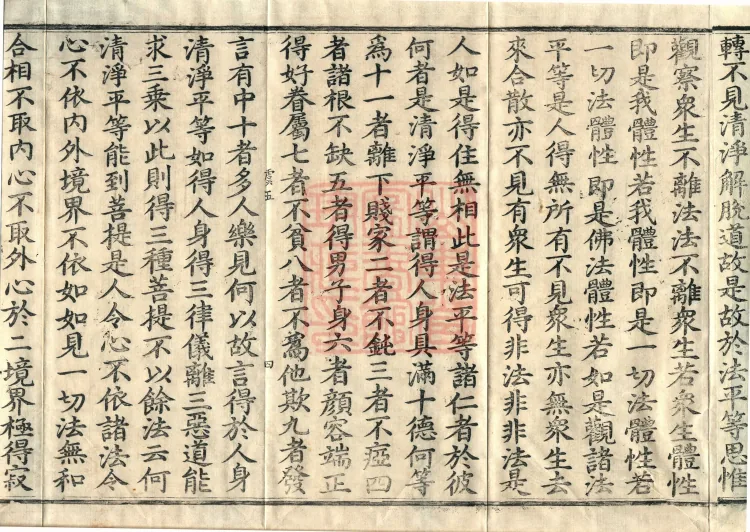 轉不見清淨解脫道故是故於法平等思惟
觀察衆生不離法法不離衆生若衆生體性
即是我體性若我體性即是一切法體性若
一切法體性即是佛法體性若如是觀諸法
平等是人得無所有不見衆生亦無衆生去
來合散亦不見有衆生可得非法非非法是
人如是得住無相此是法平等諸仁者於彼
何者是清淨平等謂得人身具滿十德何等
爲十一者離下賤家二者不鈍三者不瘂四
者諸根不缺五者得男子身六者顏容端正
得好眷屬七者不貧八者不爲他欺九者發
言有中十者多人樂見何以故言得於人身
清淨平等如得人身得三律儀離三惡道能
求三乘以此則得三種菩提不以餘法云何
清淨平等能到菩提是人令心不依諸法令
心不依内外境界不依如如見一切法無和
合相不取内心不取外心於二境界極得寂
四